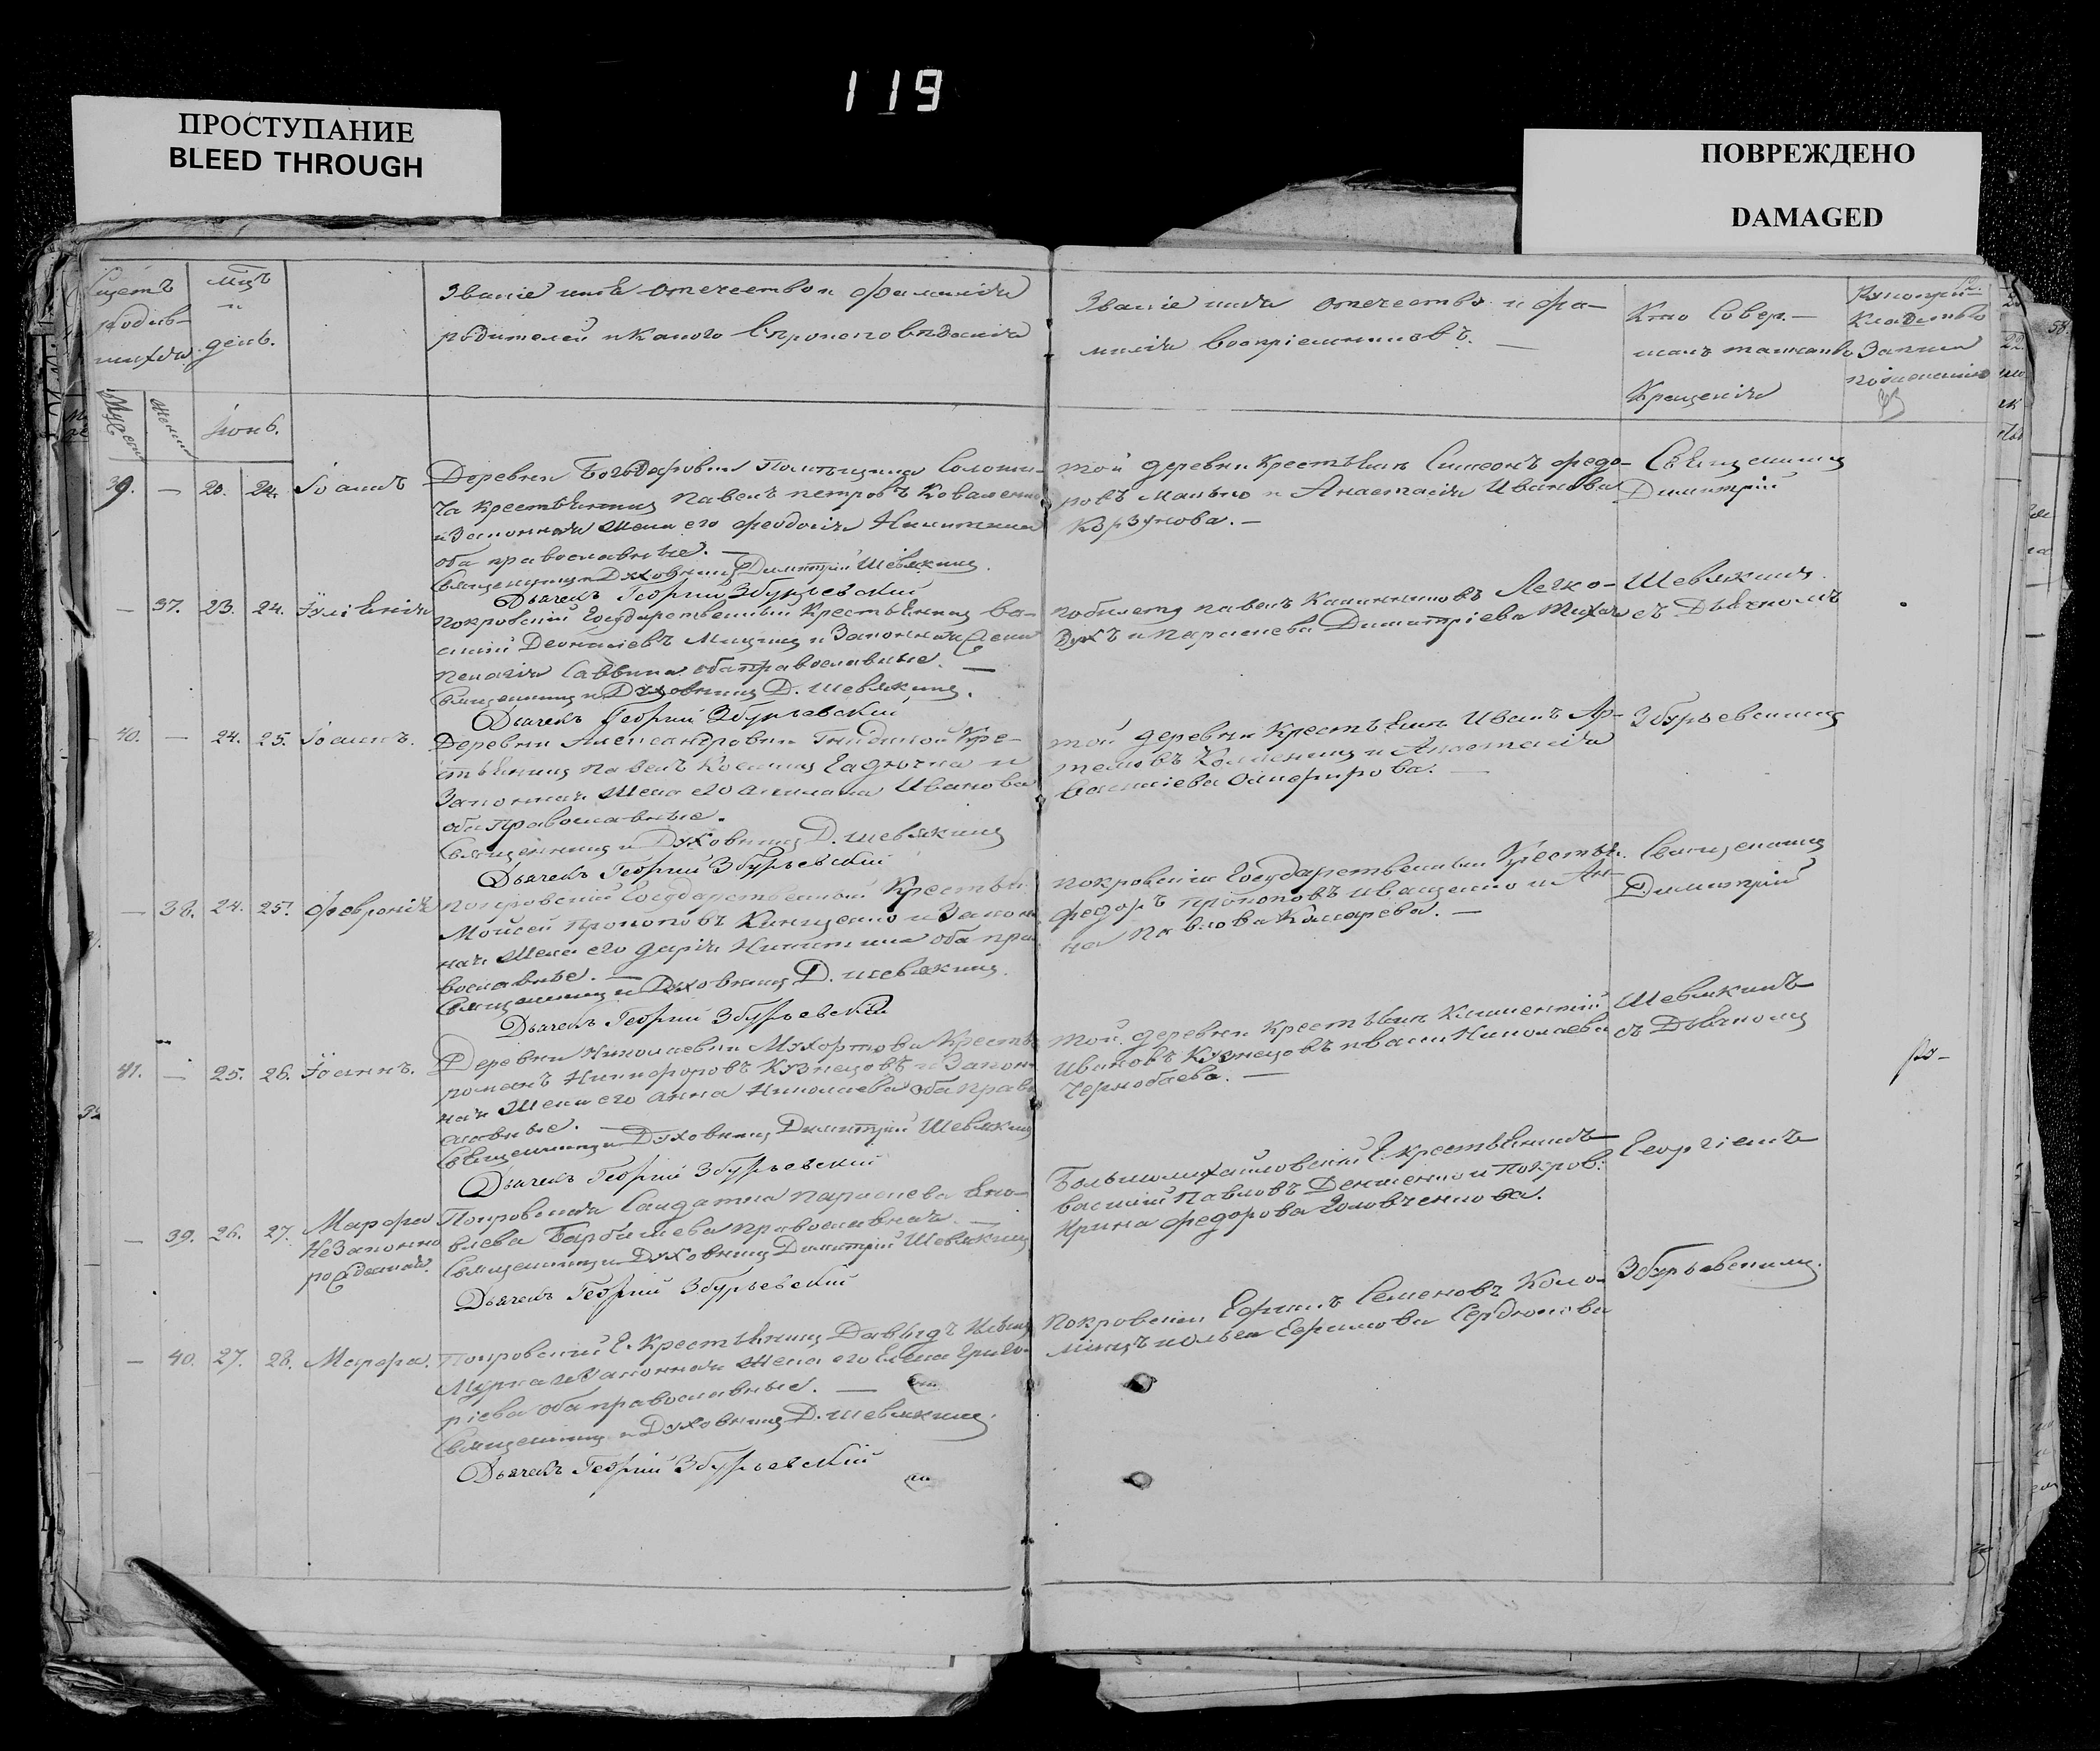 119
ПРОСТУПАНИЕ
BLEED THROUGH
ПОВРЕЖДЕНО
DAMAGED
58
Счетъ родив-шихся
мцъ и день.
Званіе имя отечество и фамилія
родителей и какого вѣроисповѣданія
Званіе имя отечество и фа-
милія воспріемниковъ. —
Кто совер-
шалъ таинство
Крещенія
Рукопри-
кладство
Іюнь.
39. — 20. 24. Іоаннъ
Деревни Богодаровки Помѣщика
ча крестьянинъ Павелъ Петровъ Коваленко
и Законная жена его Феодосія Никитина
оба православные. —
Священникъ и Духовникъ Димитрій Шевякинъ.
Дьячекъ Георгій Збурьевскій
той деревни Крестьянинъ Симеонъ Федо-
ровъ и Анастасія Иванова
Корзунова. —
Священникъ
Димитрій
— 37. 23. 24. Іуліянія
Покровскій Государственный Крестьянинъ Ва-
силій Леонтіевъ Мицикъ и Законная Жена
Пелагія Саввина оба православные. —
Священникъ и Духовникъ Д. Шевякинъ.
Дьячекъ Георгій Збурьевскій
Павелъ Калинниковъ Легко-
духъ и Параскева Димитріева
Шевякинъ
съ Дьячкомъ
40. — 24. 25. Іоаннъ.
Деревни Александровки Кре-
стьянинъ Павелъ Косминъ Гадючка и
Законная жена его Иванова
оба Православные.
Священникъ и Духовникъ Д. Шевякинъ
Дьячекъ Георгій Збурьевскій
той деревни Крестьянинъ Иванъ Ар-
темовъ и Анастасія
Василіева Онофрирова. —
Збурьевскимъ
— 38. 24. 25. Февронія
Покровскій Государственный Крестьян.
Моисей Прокоповъ и Закон-
ная жена его Дарія Никитина оба пра-
вославные. —
Священникъ и Духовникъ Д. Шевякинъ.
Дьячекъ Георгій Збурьевскій
Покровскій Государственный Крестьян.
Федоръ Прокоповъ Иващенко и Ан-
на Павлова Комарева. —
Священникъ
Димитрій
41. — 25. 26. Іоаннъ.
Деревни Николаевки Мухортова Крестья
Романъ Никифоровъ Кузнецовъ и Закон-
ная жена его Анна Николаева оба право
славные. —
Священникъ и Духовникъ Димитрій Шевякинъ
Дьячекъ Георгій Збурьевскій
той деревни Крестьянинъ Климентій
Ивановъ Кузнецовъ и Николаева
Чернобаева. —
Шевякинъ
съ Дьячкомъ
— 39. 26. 27. Марфа
Незаконно
рожденная.
Покровская Солдатка Параскева Яко-
влева Барбишева православная. —
Священникъ и Духовникъ Димитрій Шевякинъ
Дьячекъ Георгій Збурьевскій
Большомихайловскій Г. крестьянинъ
Василій Павловъ и Покров.
Ирина Федорова Головченкова.
Георгіемъ
— 40. 27. 28. Марфа.
Покровскій Г. Крестьянинъ Давыдъ Ильинъ
Мурка и Законная жена его Елена Григо-
ріева оба православные. —
Священникъ и Духовникъ Д. Шевякинъ.
Дьячекъ Георгій Збурьевскій
Покровскіи Ефимъ Семеновъ Коло-
міецъ Ефимова Сердюкова
Збурьевскимъ.